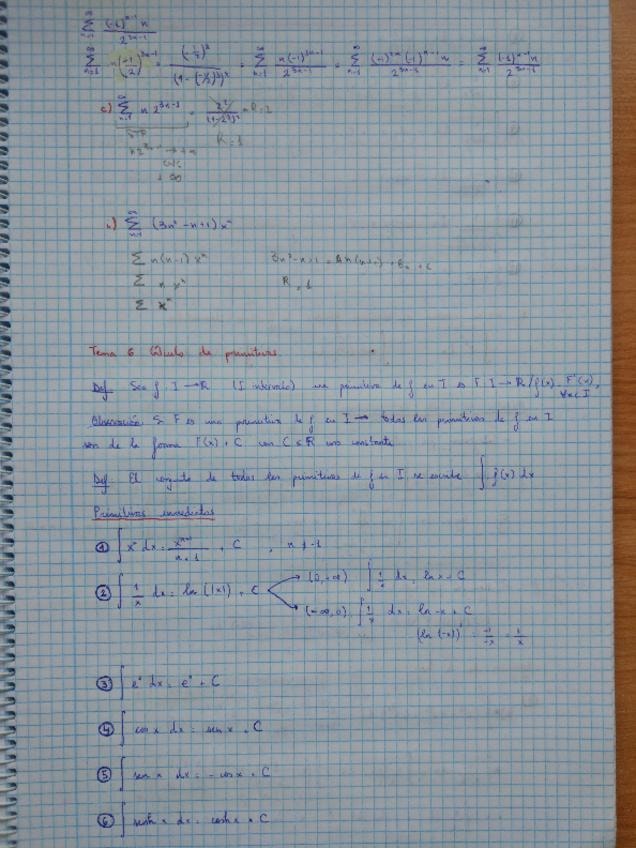 ∑_{n=1}^∞ (-1)^{n-1} n / 2^{3n-1}
∑_{n=1}^∞ n(-1/2)^{3n-1} = (-1/2)^2 / (1-(-1/2)^3)^2 = ∑_{n=1}^∞ n(-1)^{3n-1} / 2^{3n-1} = ∑_{n=1}^∞ (-1)^{2n} (-1)^{n-1} n / 2^{3n-1} = ∑_{n=1}^∞ (-1)^{n-1} n / 2^{3n-1}
c) ∑_{n=1}^∞ n 2^{3n-1} = 2^2 / (1-2^3)^2 R=1
R=1
+∞
∑_{n=1}^∞ (3n² - n + 1) x^n
∑ n(n-1) x^n 3n² - n + 1 = A n(n-1) + B n + C
∑ n x^n R = 1
∑ x^n
Tema 6 Cálculo de primitivas
Def Sea f: I → ℝ (I intervalo) una primitiva de f en I es F: I → ℝ / f(x) = F'(x), ∀x ∈ I
Observación Si F es una primitiva de f en I → todas las primitivas de f en I
son de la forma F(x) + C con C ∈ ℝ una constante
Def El conjunto de todas las primitivas de f en I se escribe ∫ f(x) dx
Primitivas inmediatas
① ∫ x^n dx = x^{n+1} / n+1 + C , n ≠ -1
② ∫ 1/x dx = ln(|x|) + C → (0, +∞) ∫ 1/x dx = ln x + C
→ (-∞, 0) ∫ 1/x dx = ln -x + C
(ln(-x))' = -1/-x = 1/x
③ ∫ e^x dx = e^x + C
④ ∫ cos x dx = sen x + C
⑤ ∫ sen x dx = -cos x + C
⑥ ∫ senh x dx = cosh x + C